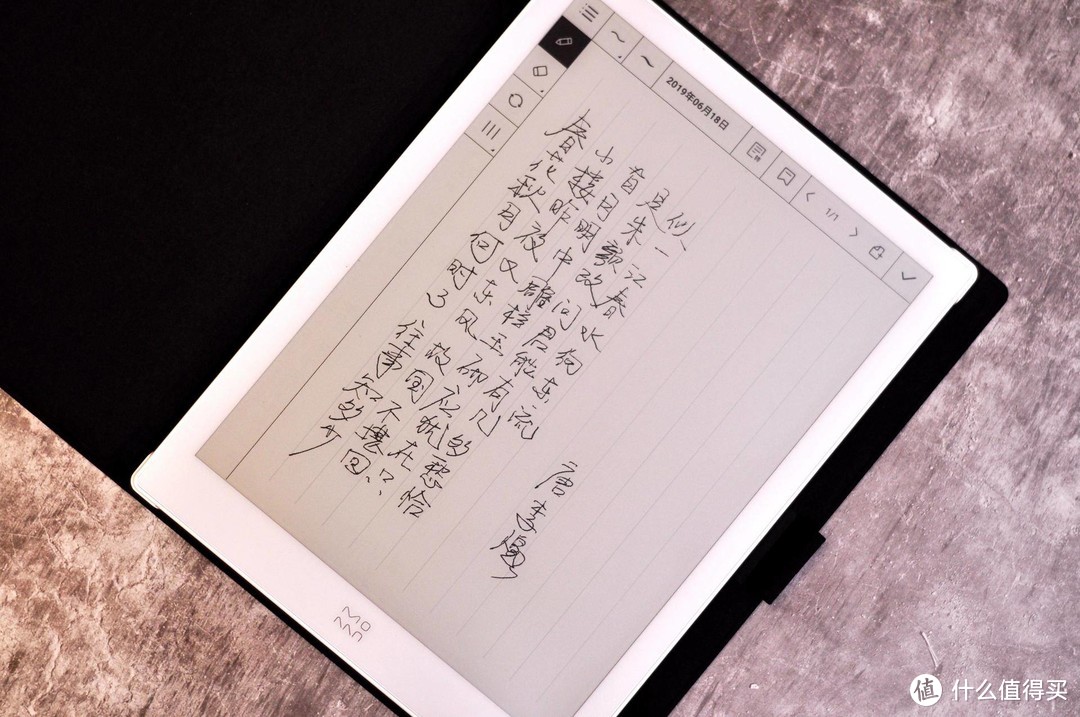 2019年06月18日
1/1
春花秋月何时了往事知多少
小楼昨夜又东风故国不堪回
首月明中雕栏玉砌应犹在只
是朱颜改问君能有几多愁恰
似一江春水向东流
唐李煜
值 什么值得买